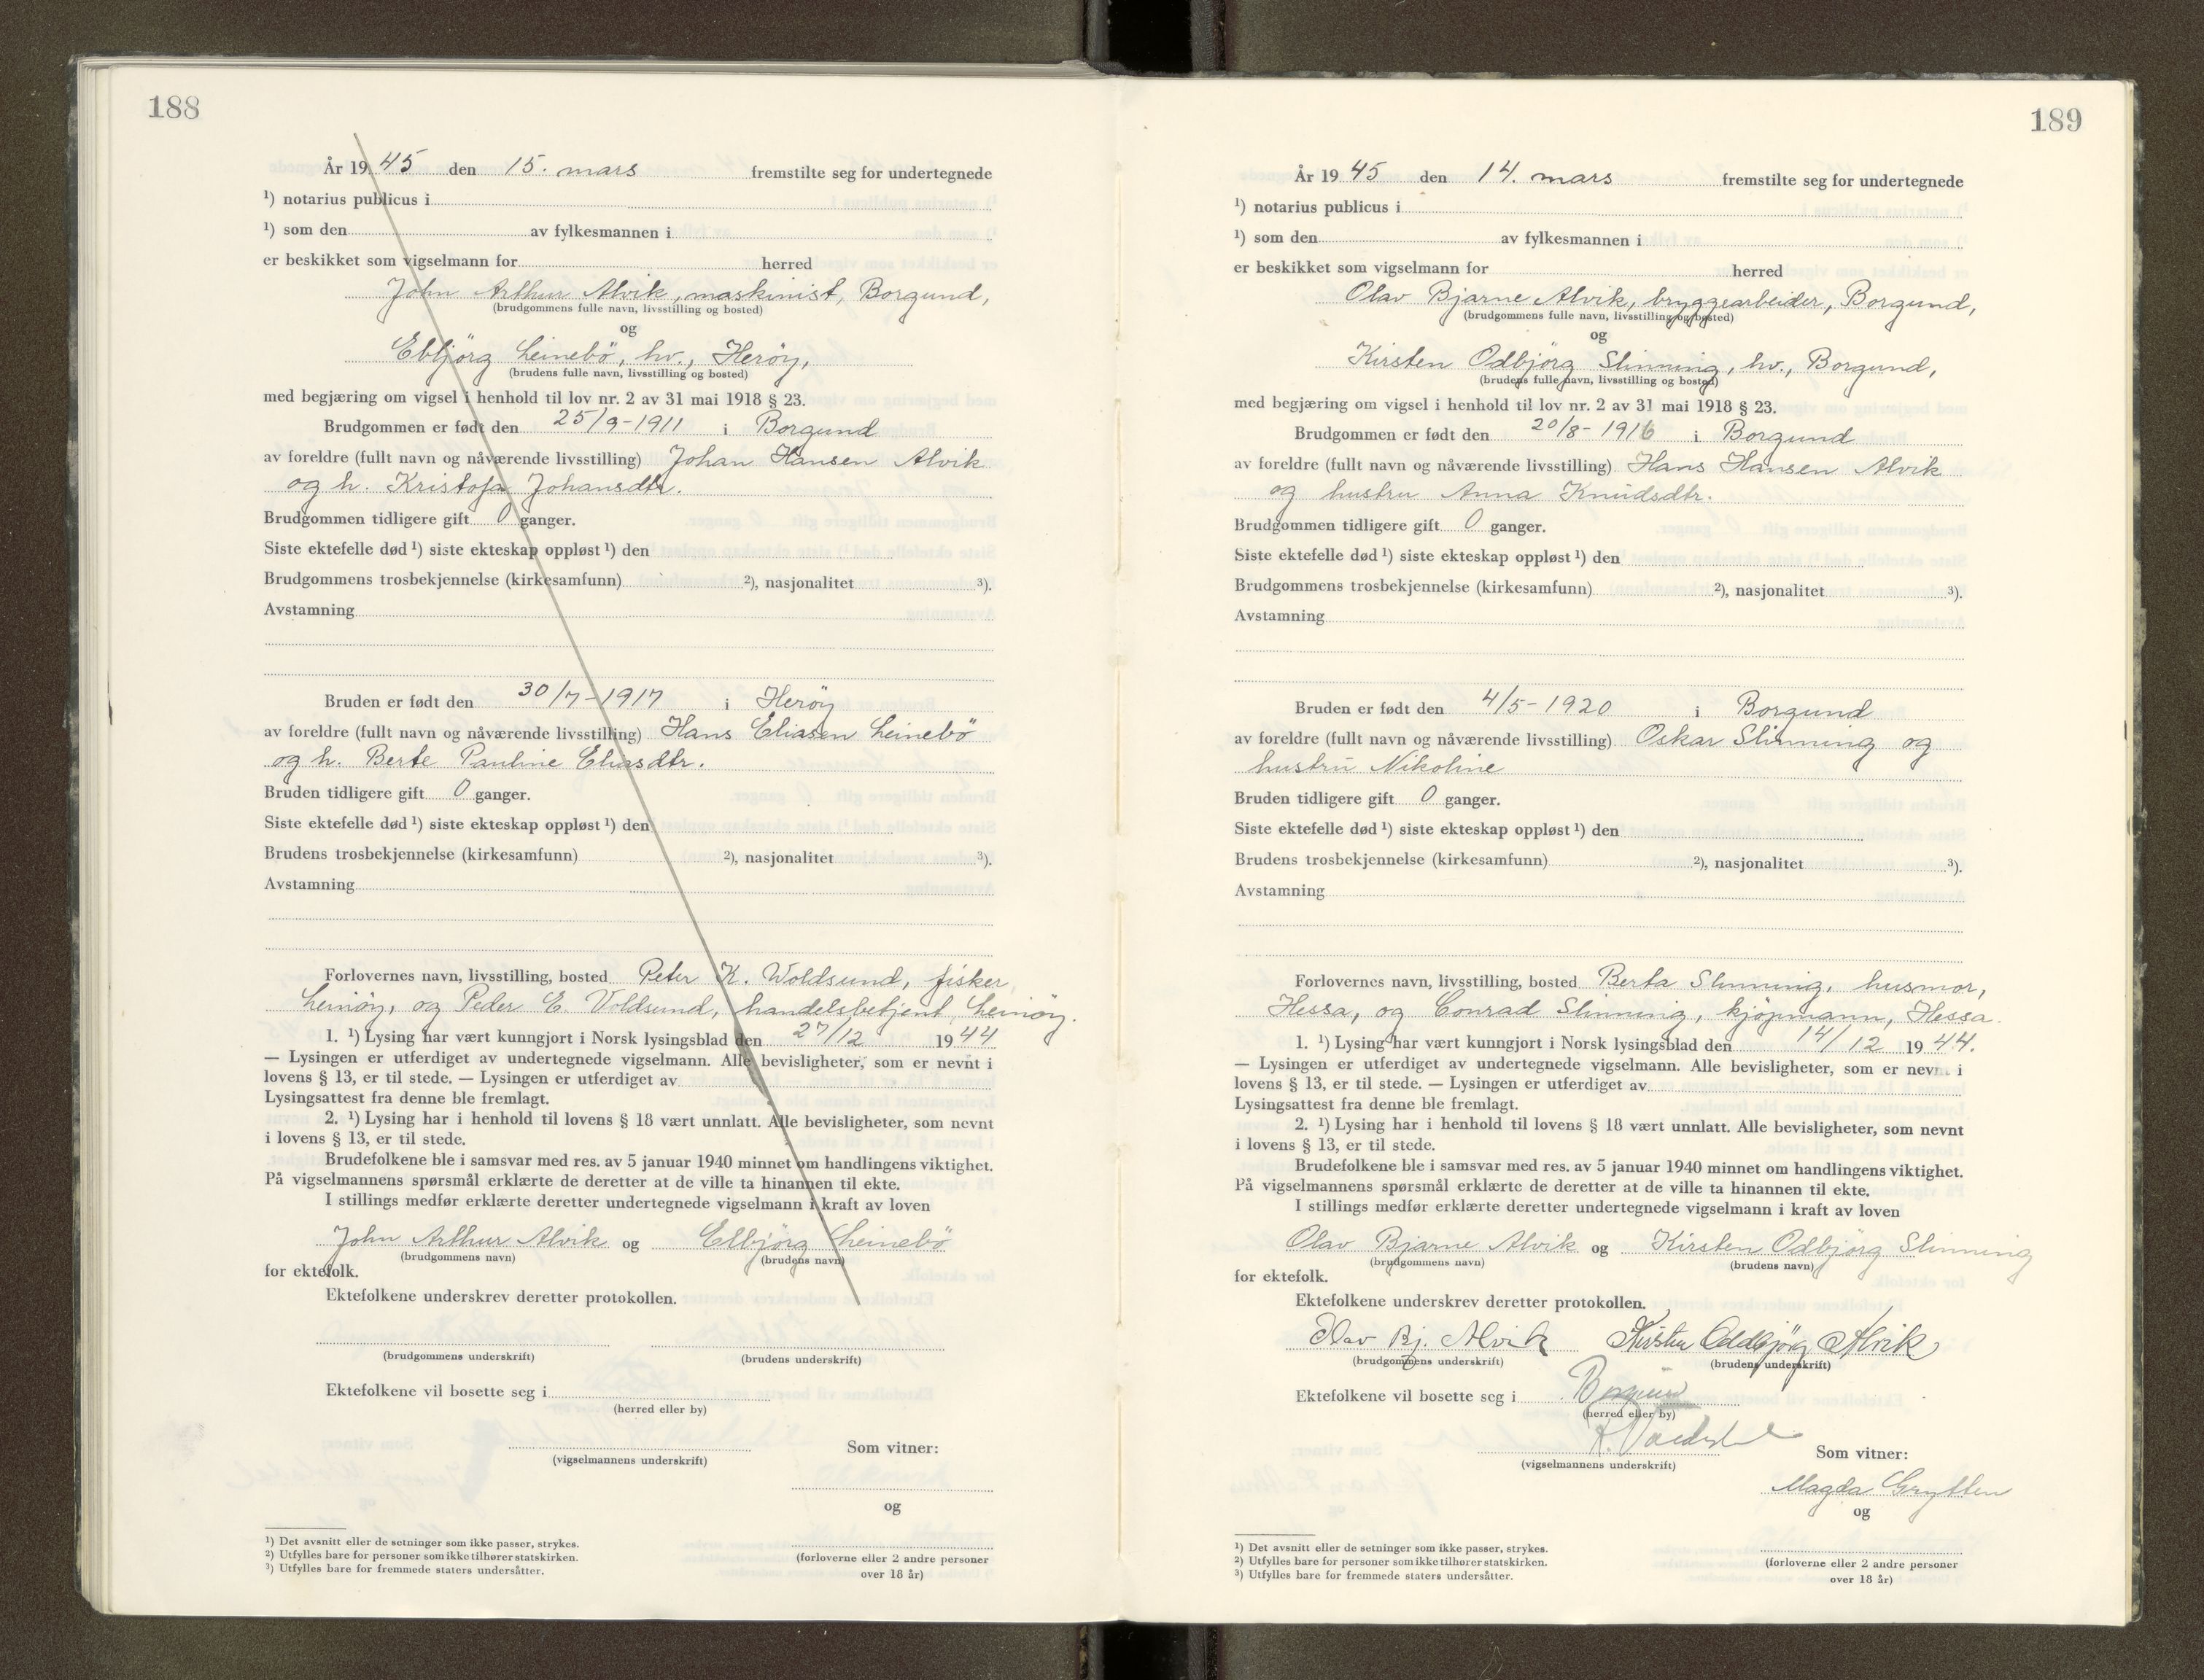 188
År 19 45 den 15. mars fremstilte seg for undertegnede
¹) notarius publicus i
¹) som den av fylkesmannen i
er beskikket som vigselmann for herred
John Arthur Alvik, maskinist, Borgund,
(brudgommens fulle navn, livsstilling og bosted)
og
Elbjörg Leinebö, hv., Heröy,
(brudens fulle navn, livsstilling og bosted)
med begjæring om vigsel i henhold til lov nr. 2 av 31 mai 1918 § 23.
Brudgommen er født den 25/9-1911 i Borgund
av foreldre (fullt navn og nåværende livsstilling) Johan Hansen Alvik
og h. Kristofa Johansdtr.
Brudgommen tidligere gift 0 ganger.
Siste ektefelle død ¹) siste ekteskap oppløst ¹) den
Brudgommens trosbekjennelse (kirkesamfunn) ²), nasjonalitet ³).
Avstamning
Bruden er født den 30/7-1917 i Heröy
av foreldre (fullt navn og nåværende livsstilling) Hans Eliasen Leinebö
og h. Berte Pauline Eliasdtr.
Bruden tidligere gift 0 ganger.
Siste ektefelle død ¹) siste ekteskap oppløst ¹) den
Brudens trosbekjennelse (kirkesamfunn) ²), nasjonalitet ³).
Avstamning
Forlovernes navn, livsstilling, bosted Peter K. Woldsund, fisker
Leinöy, og Peder E. Voldsund, handelsbetjent, Leinöy.
1. ¹) Lysing har vært kunngjort i Norsk lysingsblad den 27/12 19 44
— Lysingen er utferdiget av undertegnede vigselmann. Alle bevisligheter, som er nevnt i
lovens § 13, er til stede. — Lysingen er utferdiget av
Lysingsattest fra denne ble fremlagt.
2. ¹) Lysing har i henhold til lovens § 18 vært unnlatt. Alle bevisligheter, som nevnt
i lovens § 13, er til stede.
Brudefolkene ble i samsvar med res. av 5 januar 1940 minnet om handlingens viktighet.
På vigselmannens spørsmål erklærte de deretter at de ville ta hinannen til ekte.
I stillings medfør erklærte deretter undertegnede vigselmann i kraft av loven
John Arthur Alvik og Elbjörg Leinebö
(brudgommens navn) (brudens navn)
for ektefolk.
Ektefolkene underskrev deretter protokollen.
(brudgommens underskrift) (brudens underskrift)
Ektefolkene vil bosette seg i
(herred eller by)
Som vitner:
(vigselmannens underskrift)
og
¹) Det avsnitt eller de setninger som ikke passer, strykes.
²) Utfylles bare for personer som ikke tilhører statskirken.
³) Utfylles bare for fremmede staters undersåtter.
(forloverne eller 2 andre personer
over 18 år)
189
År 19 45 den 14. mars fremstilte seg for undertegnede
¹) notarius publicus i
¹) som den av fylkesmannen i
er beskikket som vigselmann for herred
Olav Bjarne Alvik, bryggearbeider, Borgund,
(brudgommens fulle navn, livsstilling og bosted)
og
Kirsten Odbjörg Slinning, hv., Borgund,
(brudens fulle navn, livsstilling og bosted)
med begjæring om vigsel i henhold til lov nr. 2 av 31 mai 1918 § 23.
Brudgommen er født den 20/8-1916 i Borgund
av foreldre (fullt navn og nåværende livsstilling) Hans Hansen Alvik
og hustru Anna Knudsdtr.
Brudgommen tidligere gift 0 ganger.
Siste ektefelle død ¹) siste ekteskap oppløst ¹) den
Brudgommens trosbekjennelse (kirkesamfunn) ²), nasjonalitet ³).
Avstamning
Bruden er født den 4/5-1920 i Borgund
av foreldre (fullt navn og nåværende livsstilling) Oskar Slinning og
hustru Nikoline
Bruden tidligere gift 0 ganger.
Siste ektefelle død ¹) siste ekteskap oppløst ¹) den
Brudens trosbekjennelse (kirkesamfunn) ²), nasjonalitet ³).
Avstamning
Forlovernes navn, livsstilling, bosted Berta Slinning, husmor,
Hessa, og Conrad Slinning, kjöpmann, Hessa.
1. ¹) Lysing har vært kunngjort i Norsk lysingsblad den 14/12 19 44.
— Lysingen er utferdiget av undertegnede vigselmann. Alle bevisligheter, som er nevnt i
lovens § 13, er til stede. — Lysingen er utferdiget av
Lysingsattest fra denne ble fremlagt.
2. ¹) Lysing har i henhold til lovens § 18 vært unnlatt. Alle bevisligheter, som nevnt
i lovens § 13, er til stede.
Brudefolkene ble i samsvar med res. av 5 januar 1940 minnet om handlingens viktighet.
På vigselmannens spørsmål erklærte de deretter at de ville ta hinannen til ekte.
I stillings medfør erklærte deretter undertegnede vigselmann i kraft av loven
Olav Bjarne Alvik og Kirsten Odbjörg Slinning
(brudgommens navn) (brudens navn)
for ektefolk.
Ektefolkene underskrev deretter protokollen.
Olav Bj. Alvik Kirsten Oddbjörg Alvik
(brudgommens underskrift) (brudens underskrift)
Ektefolkene vil bosette seg i
(herred eller by)
Som vitner:
(vigselmannens underskrift)
Magda Grytten
og
¹) Det avsnitt eller de setninger som ikke passer, strykes.
²) Utfylles bare for personer som ikke tilhører statskirken.
³) Utfylles bare for fremmede staters undersåtter.
(forloverne eller 2 andre personer
over 18 år)